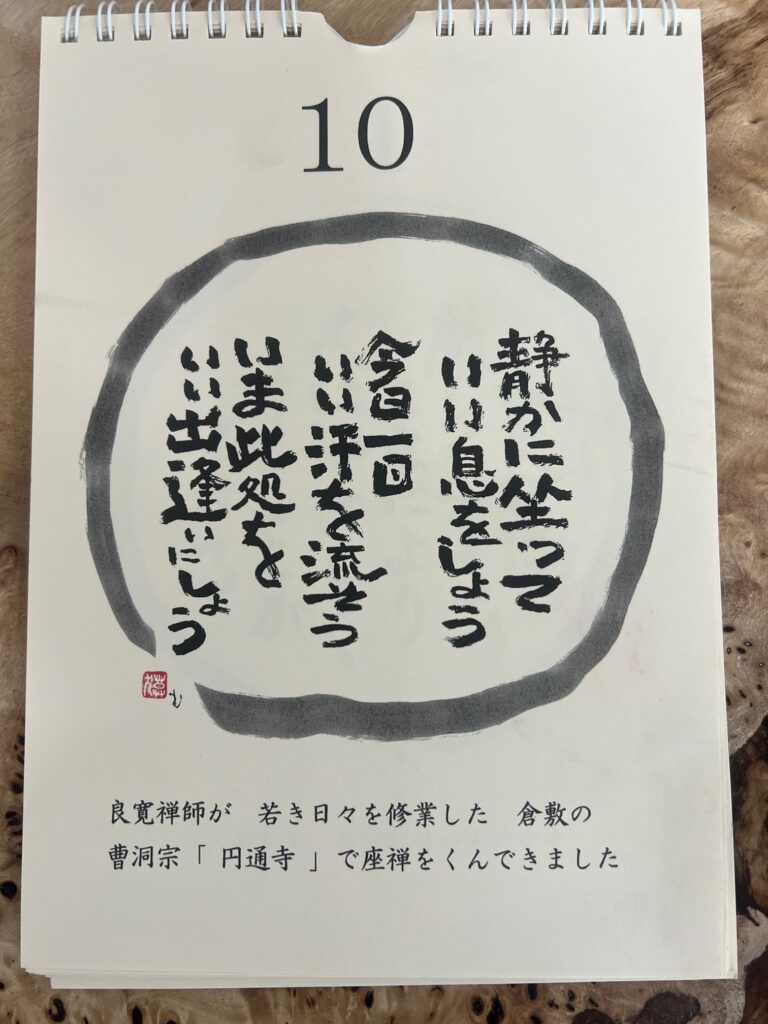 10
静かに坐って
いい息をしょう
今日一回
いい汗を流そう
いま此処を
いい出逢いにしょう
む
良寛禅師が 若き日々を修業した 倉敷の
曹洞宗「 円通寺 」で座禅をくんできました